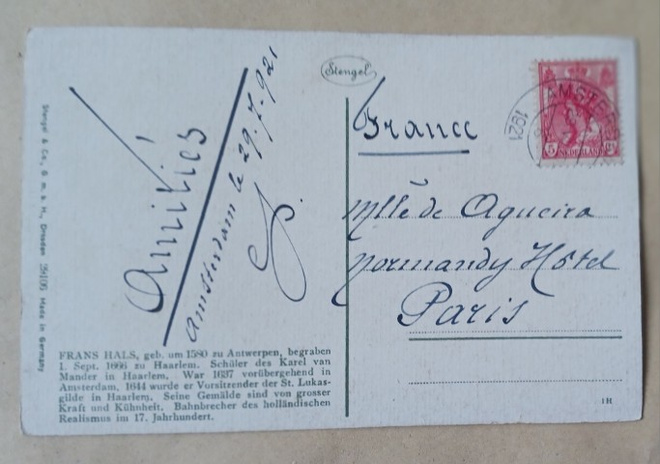 Stengel
Amitiés
Amsterdam le 29.7.921
France
Mlle de Agueira
Normandy Hôtel
Paris
AMSTERDAM
1921
5
NEDERLAND
Stengel & Co., G. m. b. H., Dresden Made in Germany
FRANS HALS, geb. um 1580 zu Antwerpen, begraben
1. Sept. 1666 zu Haarlem. Schüler des Karel van
Mander in Haarlem. War 1637 vorübergehend in
Amsterdam, 1644 wurde er Vorsitzender der St. Lukas-
gilde in Haarlem. Seine Gemälde sind von grosser
Kraft und Kühnheit. Bahnbrecher des holländischen
Realismus im 17. Jahrhundert.